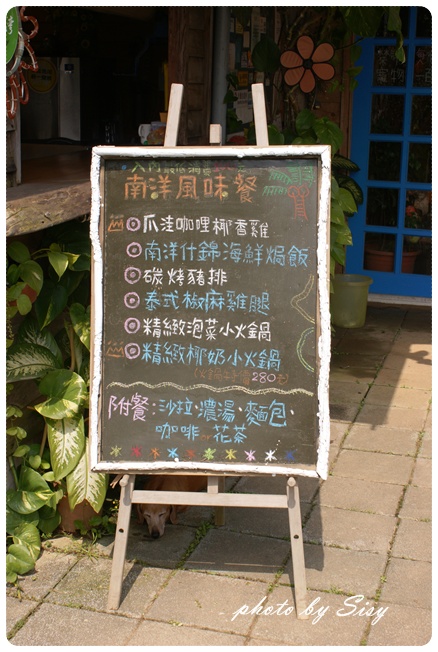 南洋風味餐
爪洼咖哩椰香雞
南洋什錦海鮮焗飯
碳烤豬排
泰式椒麻雞腿
精緻泡菜小火鍋
精緻椰奶小火鍋
280元
附餐:沙拉·濃湯·麵包·
咖啡 花茶
photo by Sisy